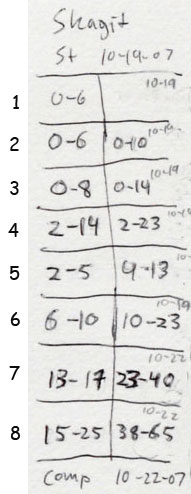 Skagit
St 10-19-07
10-19
1 0-6
10-19
2 0-6 0-10
10-19
3 0-8 0-14
10-19
4 2-14 2-23
10-
5 2-5 4-13
10-19
6 6-10 10-23
10-22
7 13-17 23-40
10-22
8 15-25 38-65
Comp 10-22-07